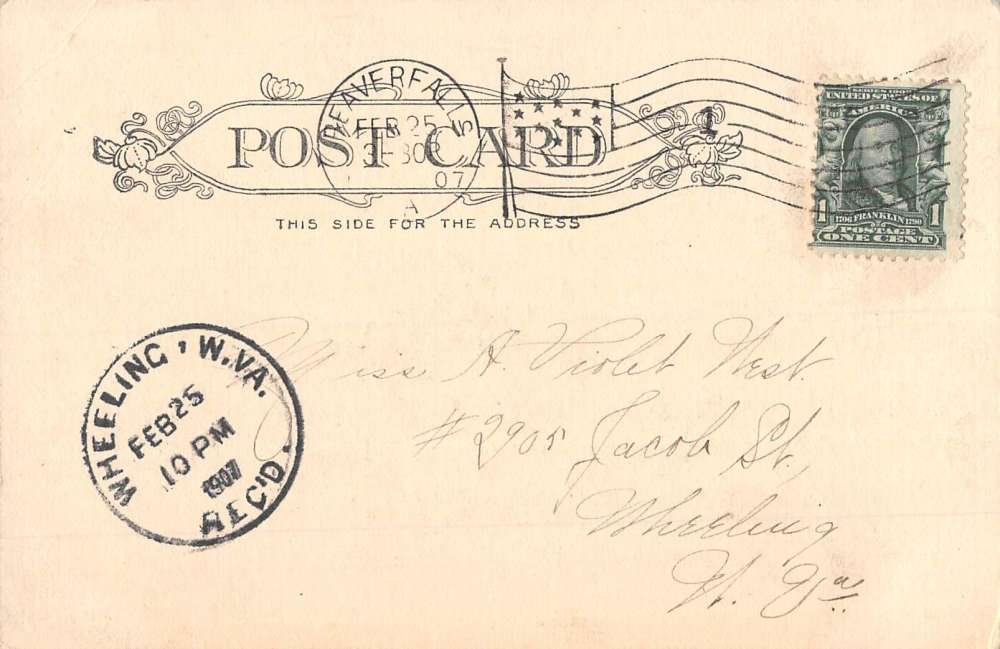 BEAVER FALLS
FEB 25
30P
07
A
1
POST CARD
THIS SIDE FOR THE ADDRESS
SERIES 1902
UNITED STATES OF
AMERICA
1 1706 FRANKLIN 1790 1
POSTAGE
ONE CENT
WHEELING, W.VA.
FEB 25
10 PM
1907
REC'D.
Miss A. Violet West.
#2905 Jacob St.,
Wheeling
W. Va.